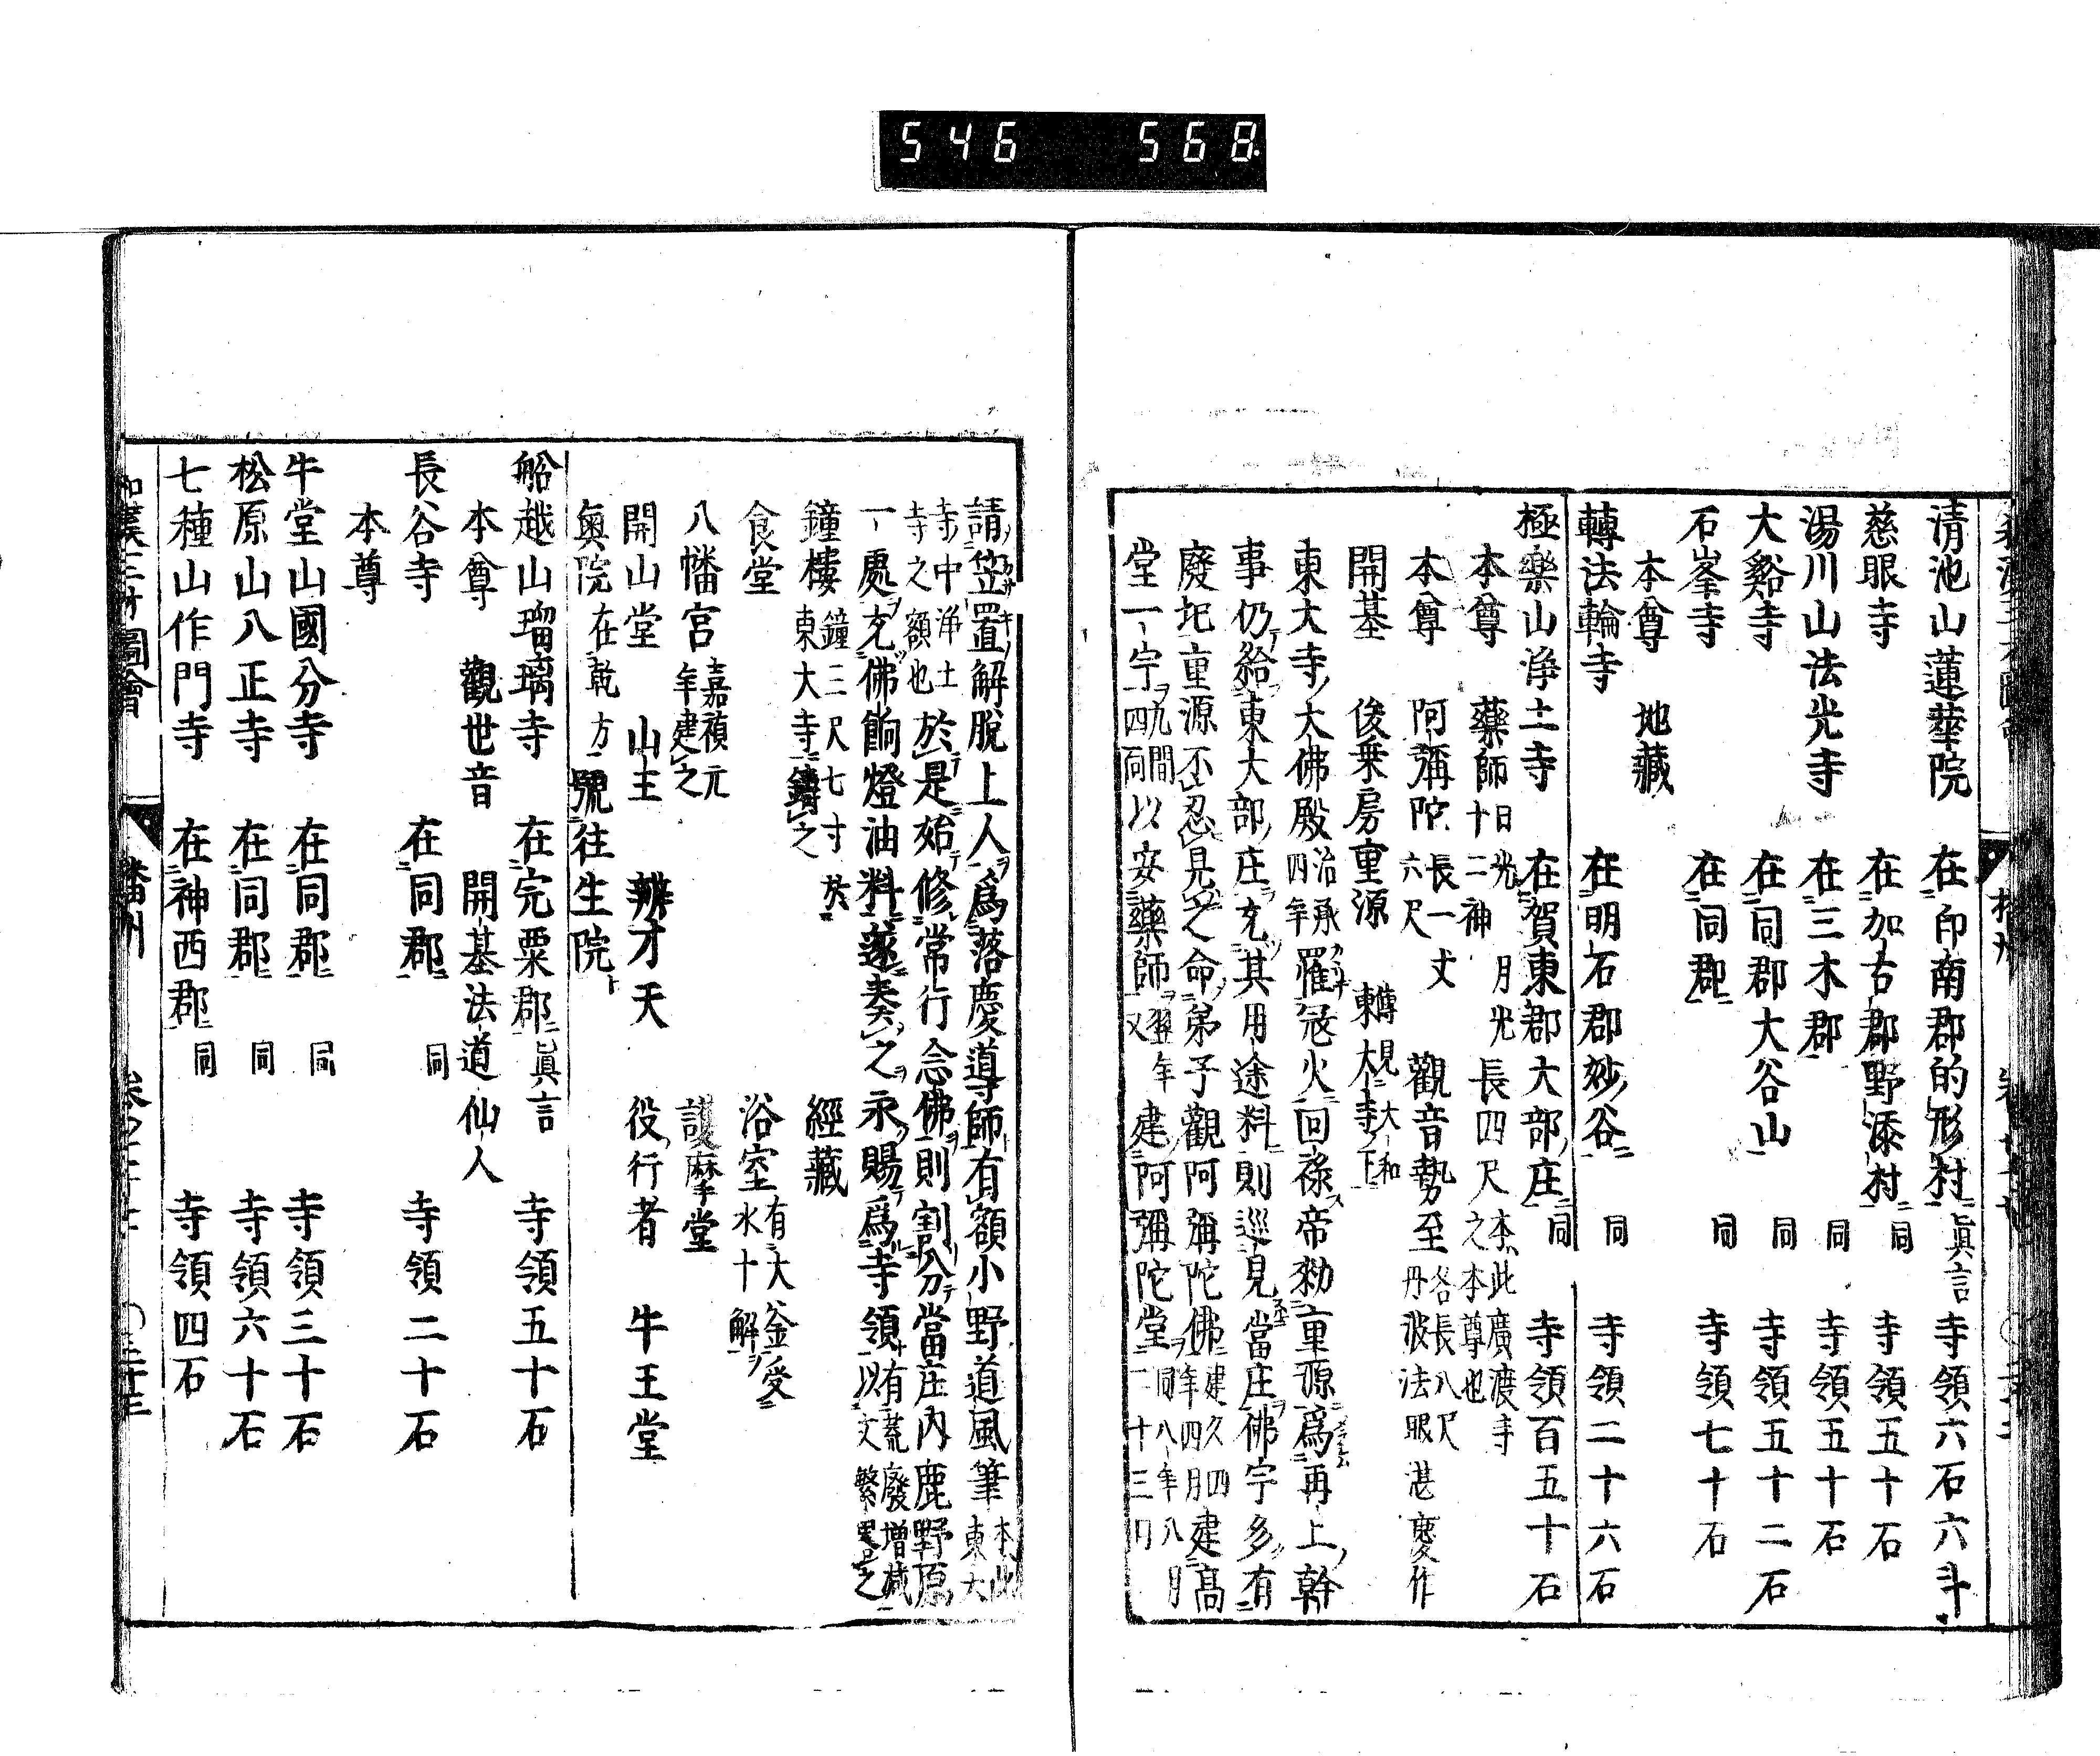 546 568
清池山蓮華院 在印南郡的形村 眞言 寺領六石六斗
慈眼寺 在加古郡野添村 同 寺領五十石
湯川山法光寺 在三木郡 同 寺領五十石
大谿寺 在同郡大谷山 同 寺領五十二石
石峯寺 在同郡 同 寺領七十石
本尊 地藏
轉法輪寺 在明石郡妙谷 同 寺領二十六石
極樂山淨土寺 在賀東郡大部庄 同 寺領百五十石
本尊 藥師 日光 月光 十二神 長四尺 本此廣渡寺之本尊也
本尊 阿彌陀 長一丈六尺 觀音勢至 各長八尺 丹波法眼湛慶作
開基 俊乗房重源 傳見大和東大寺下
東大寺大佛殿 治承四年 罹冦火回祿帝勅重源爲再上幹
事仍給東大部庄充其用途料則巡見當庄佛宇多有
廢圯重源不忍見之命弟子觀阿彌陀佛 建久四年四月 建高
堂一宇 九間四面 以安藥師 翌年 又建阿彌陀堂 同八年八月二十三日
請笠置解脫上人爲落慶導師有額小野道風筆 本山東大
寺中淨土寺之額也 於是始修常行念佛則割分當庄内鹿野原
一處充佛餉燈油料遂奏之永賜爲寺領 有荒廢増減以文繁畧之
鐘樓 鐘三尺七寸於東大寺鑄之 經藏
食堂 浴室 有大釜受水十解
八幡宮 嘉禎元年建之 護摩堂
開山堂 山王 辨才天 役行者 牛王堂
奥院 在乾方 號往生院
船越山瑠璃寺 在完粟郡 眞言 寺領五十石
本尊 觀世音 開基法道仙人
長谷寺 在同郡 同 寺領二十石
本尊
牛堂山國分寺 在同郡 同 寺領三十石
松原山八正寺 在同郡 同 寺領六十石
七種山作門寺 在神西郡 同 寺領四石
和漢三才圖會 播州